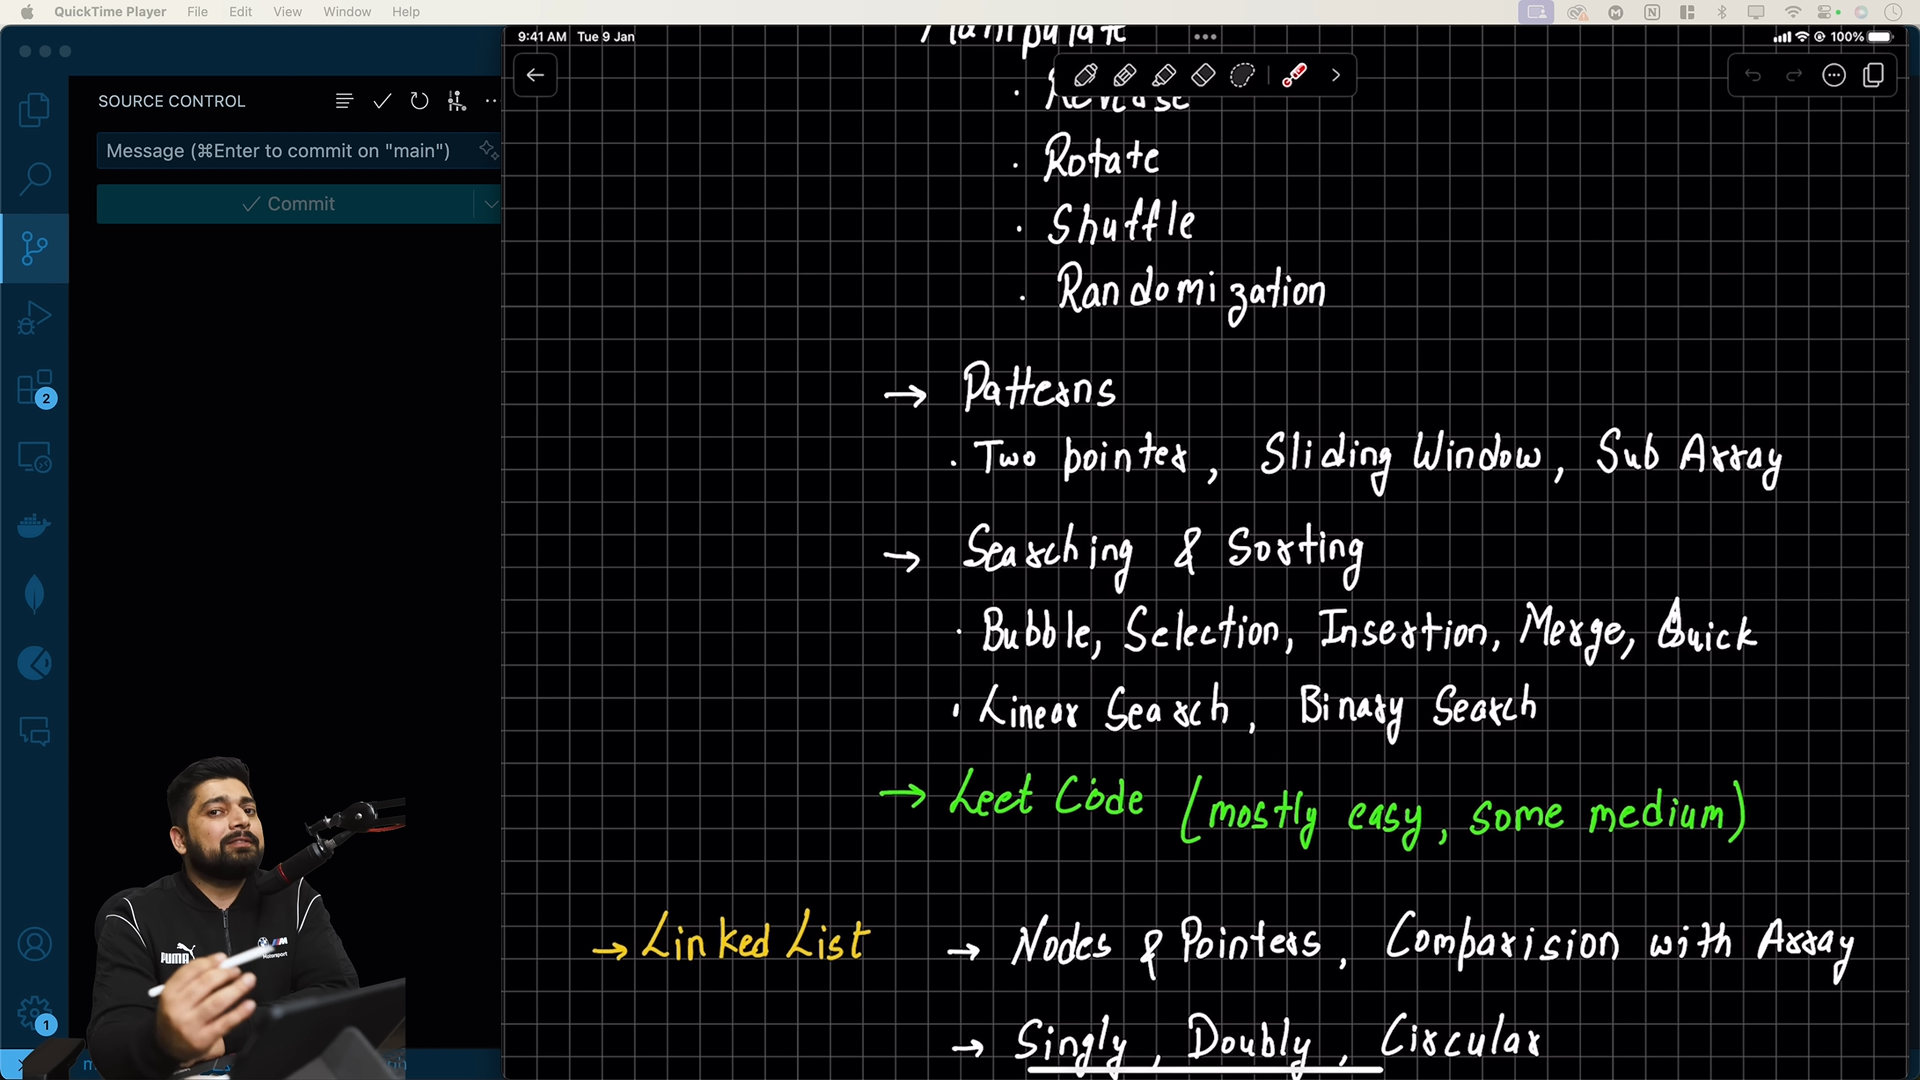 QuickTime Player File Edit View Window Help
9:41 AM Tue 9 Jan
100%
SOURCE CONTROL
Message (⌘Enter to commit on "main")
Commit
2
1
Manipulate
· Reverse
· Rotate
· Shuffle
· Randomization
→ Patterns
· Two pointer, Sliding Window, Sub Array
→ Searching & Sorting
· Bubble, Selection, Insertion, Merge, Quick
· Linear Search, Binary Search
→ Leet Code (mostly easy, some medium)
→ Linked List → Nodes & Pointers, Comparision with Array
→ Singly, Doubly, Circular
PUMA
M
Motorsport